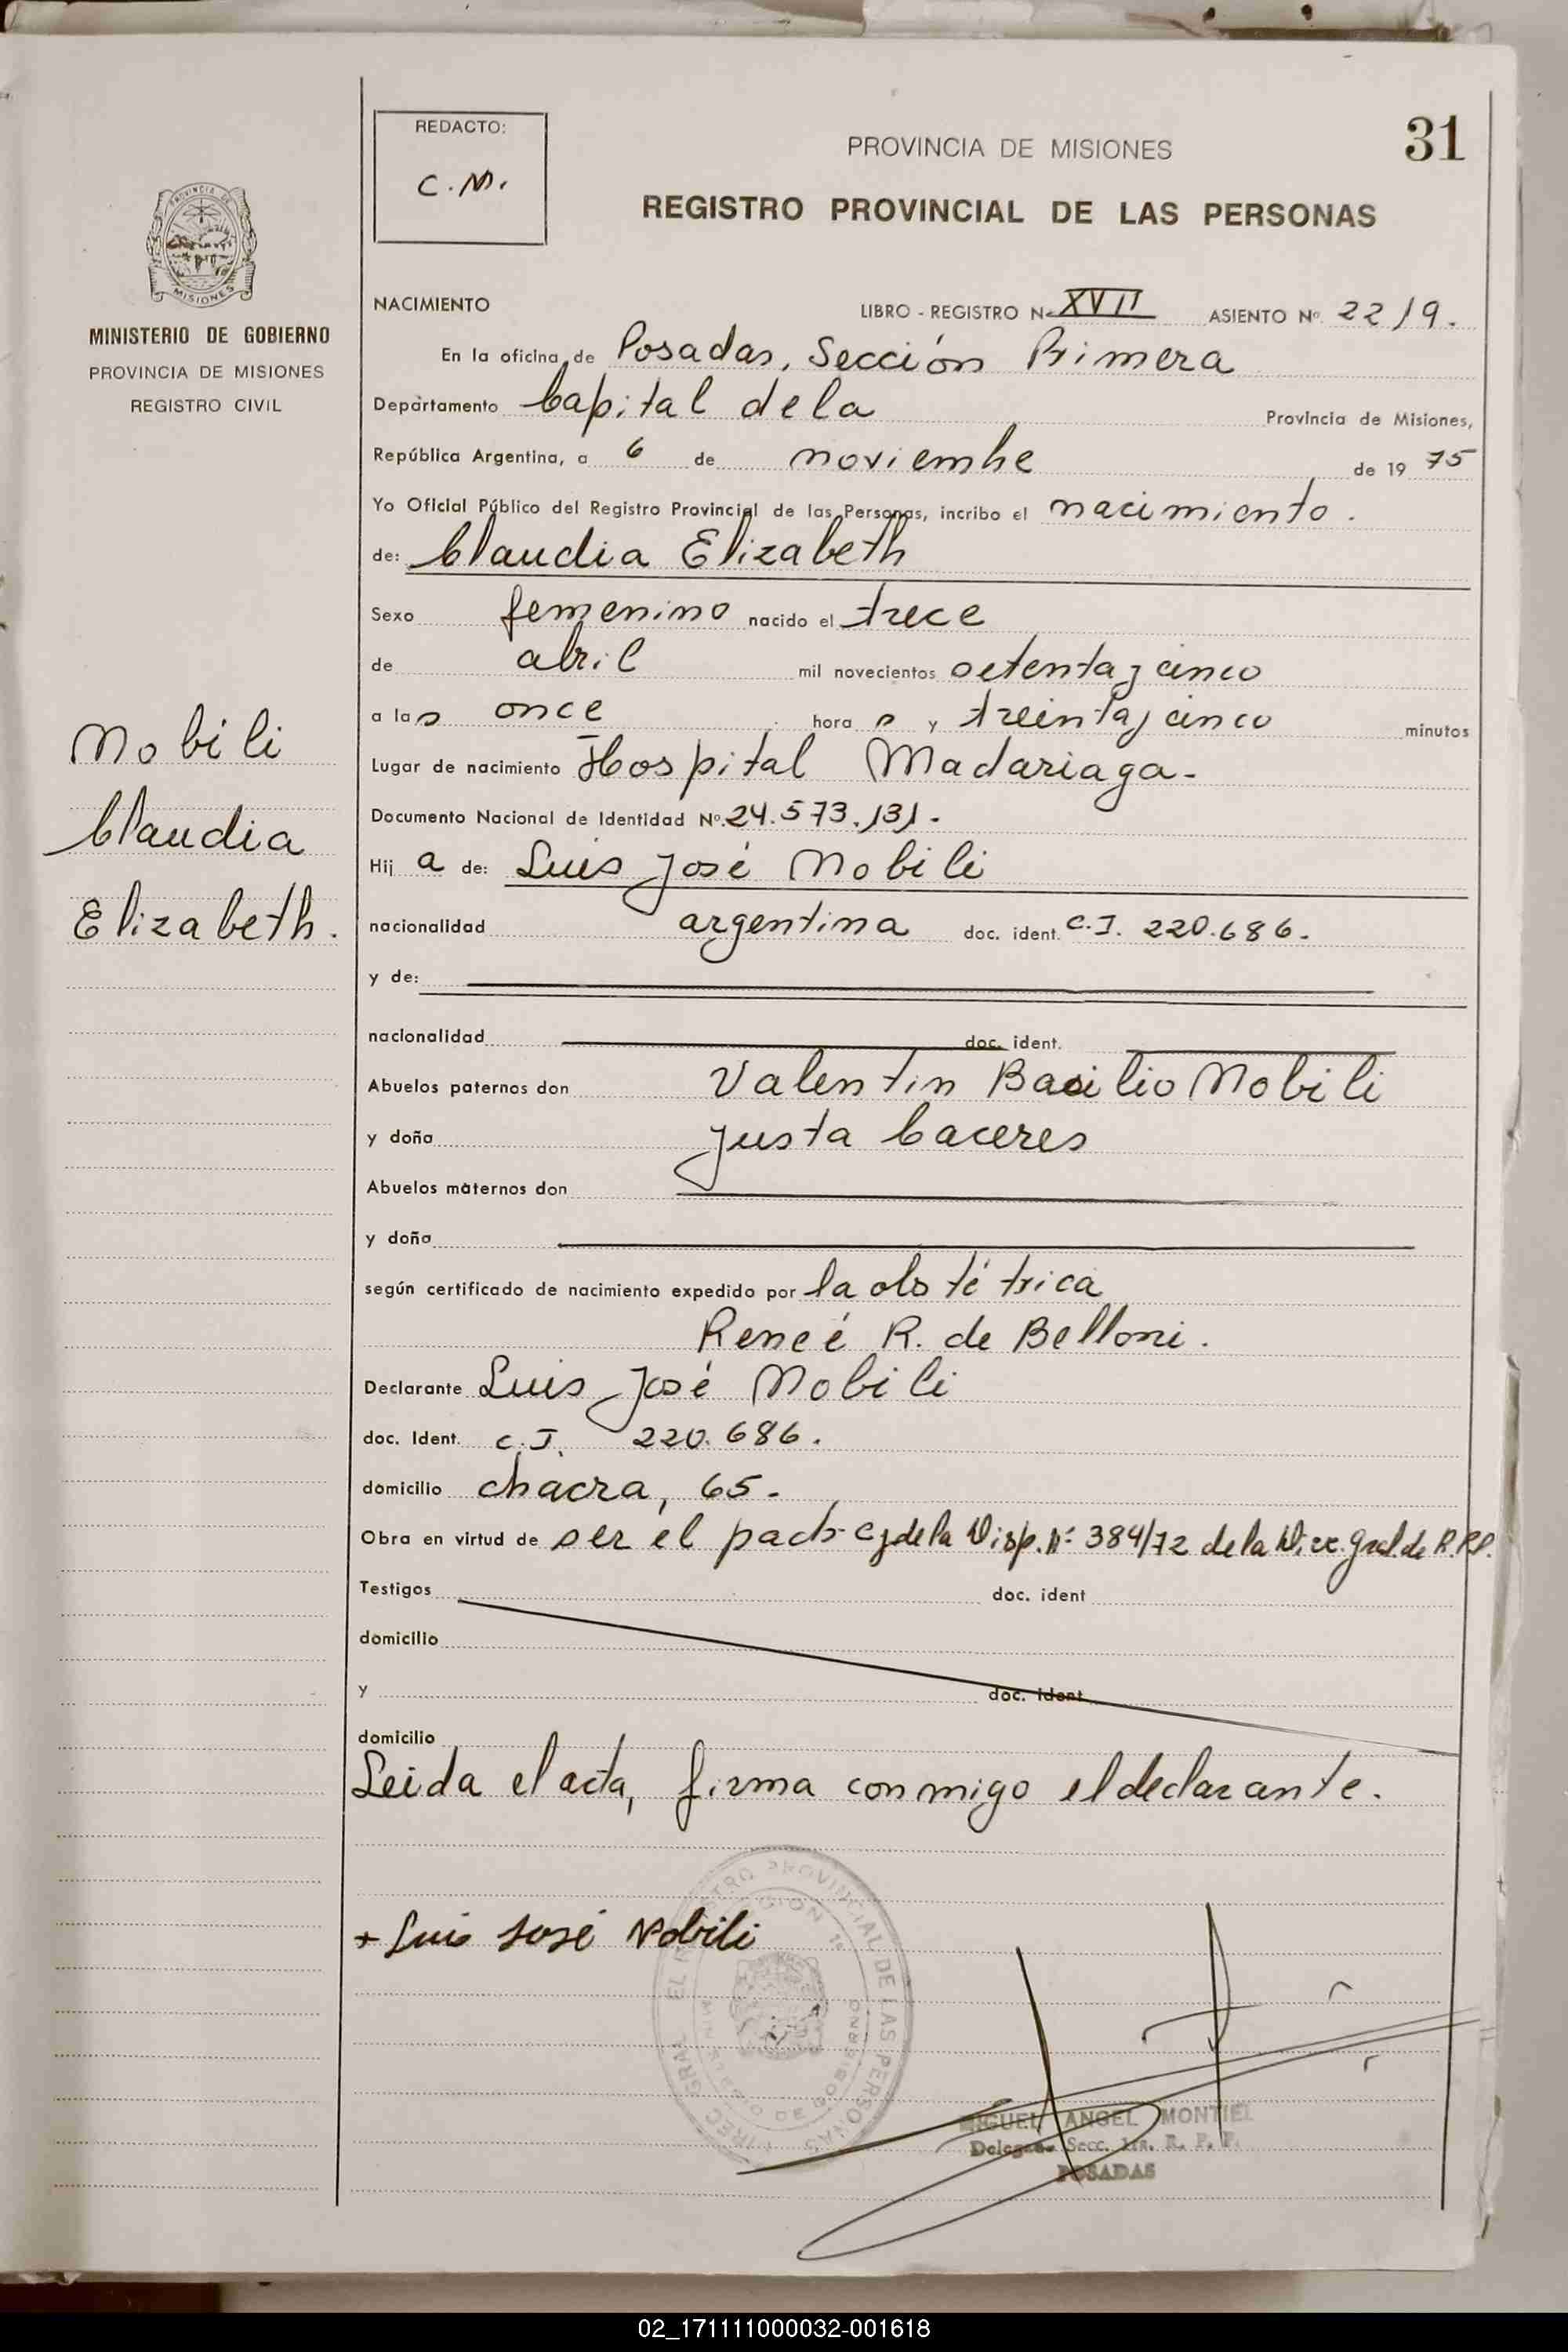 REDACTO:
C.M.
31
PROVINCIA DE MISIONES
REGISTRO PROVINCIAL DE LAS PERSONAS
PROVINCIA DE
MISIONES
MINISTERIO DE GOBIERNO
PROVINCIA DE MISIONES
REGISTRO CIVIL
Mobili
Claudia
Elizabeth.
NACIMIENTO LIBRO - REGISTRO Nº XVII ASIENTO Nº 2219.
En la oficina de Posadas, Sección Primera
Departamento Capital de la Provincia de Misiones,
República Argentina, a 6 de noviembre de 19 75
Yo Oficial Público del Registro Provincial de las Personas, incribo el nacimiento.
de: Claudia Elizabeth
Sexo femenino nacido el trece
de abril mil novecientos setenta y cinco
a las once hora s y treinta y cinco minutos
Lugar de nacimiento Hospital Madariaga-
Documento Nacional de Identidad Nº. 24.573.131.
Hij a de: Luis José Mobili
nacionalidad argentina doc. ident. C.I. 220.686.
y de:
nacionalidad doc. ident.
Abuelos paternos don Valentin Basilio Mobili
y doña Justa Caceres
Abuelos maternos don
y doña
según certificado de nacimiento expedido por la obstétrica
Reneé R. de Belloni.
Declarante Luis José Mobili
doc. Ident. C.I. 220.686.
domicilio chacra, 65.
Obra en virtud de ser el padre y de la Disp. Nº 384/72 de la Dirc. Gral. de R.P.P.
Testigos doc. ident
domicilio
y doc. ident
domicilio
Leida el acta, firma conmigo el declarante.
+ Luis José Nobili
REGISTRO PROVINCIAL DE LAS PERSONAS
MIGUEL ANGEL MONTIEL
Delegado Secc. 1ra. R. P. P.
POSADAS
02_171111000032-001618